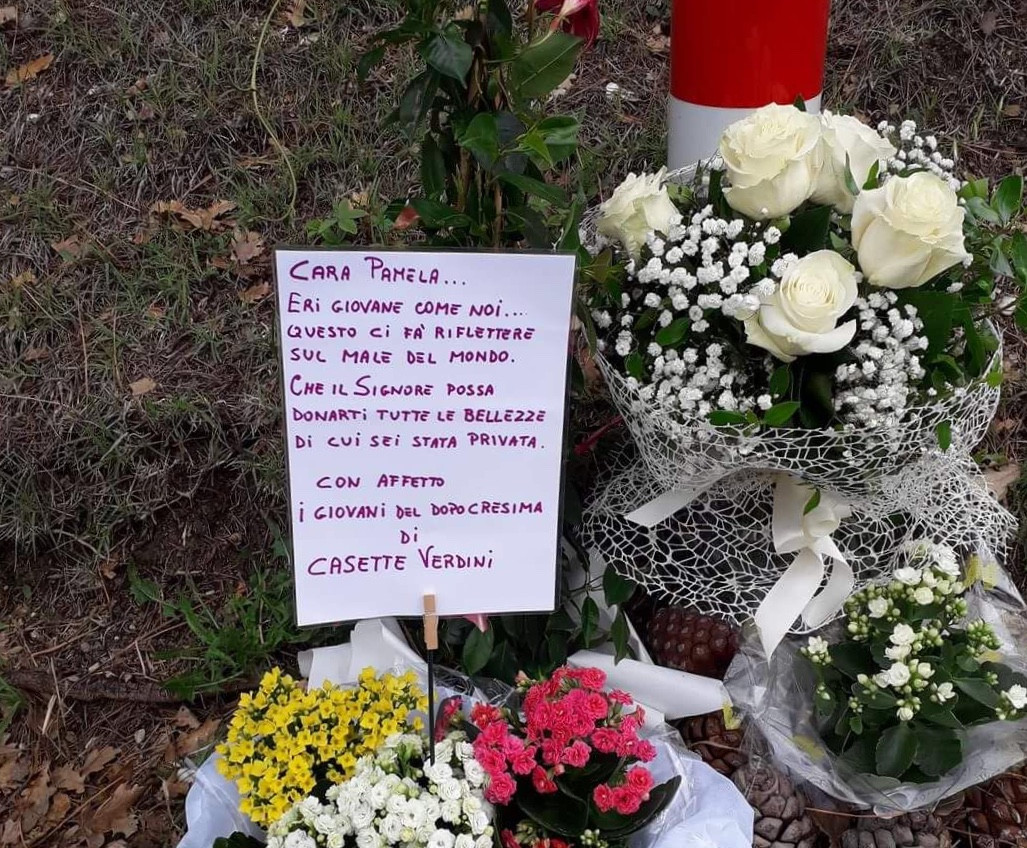 CARA PAMELA...
ERI GIOVANE COME NOI...
QUESTO CI FÀ RIFLETTERE
SUL MALE DEL MONDO.
CHE IL SIGNORE POSSA
DONARTI TUTTE LE BELLEZZE
DI CUI SEI STATA PRIVATA.
CON AFFETTO
I GIOVANI DEL DOPOCRESIMA
DI
CASETTE VERDINI